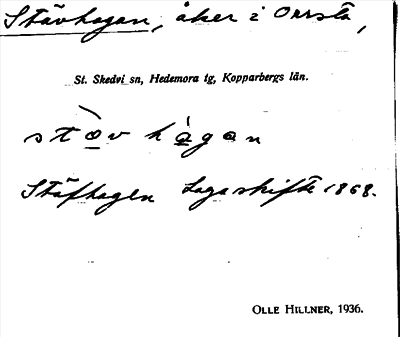 Stävhagan, åker i Orrsta,
St. Skedvi sn, Hedemora tg, Kopparbergs län.
stæ̀v hàgan
Stäfhagen Laga skifte 1868.
OLLE HILLNER, 1936.